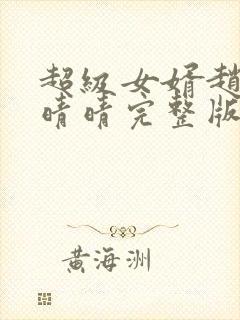 超级女婿趙
晴晴完整版
黄海洲